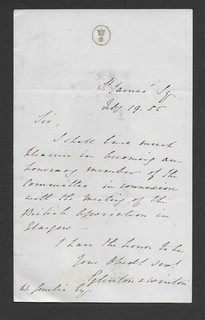 St James' Sq.
July 19. 55
Sir,
I shall have much
pleasure in becoming an
honorary member of the
Committee in connexion
with the meeting of the
British Association in
Glasgow -
I have the honor to be
Your Obedt Servt
Eglinton & Winton
W. Esq.